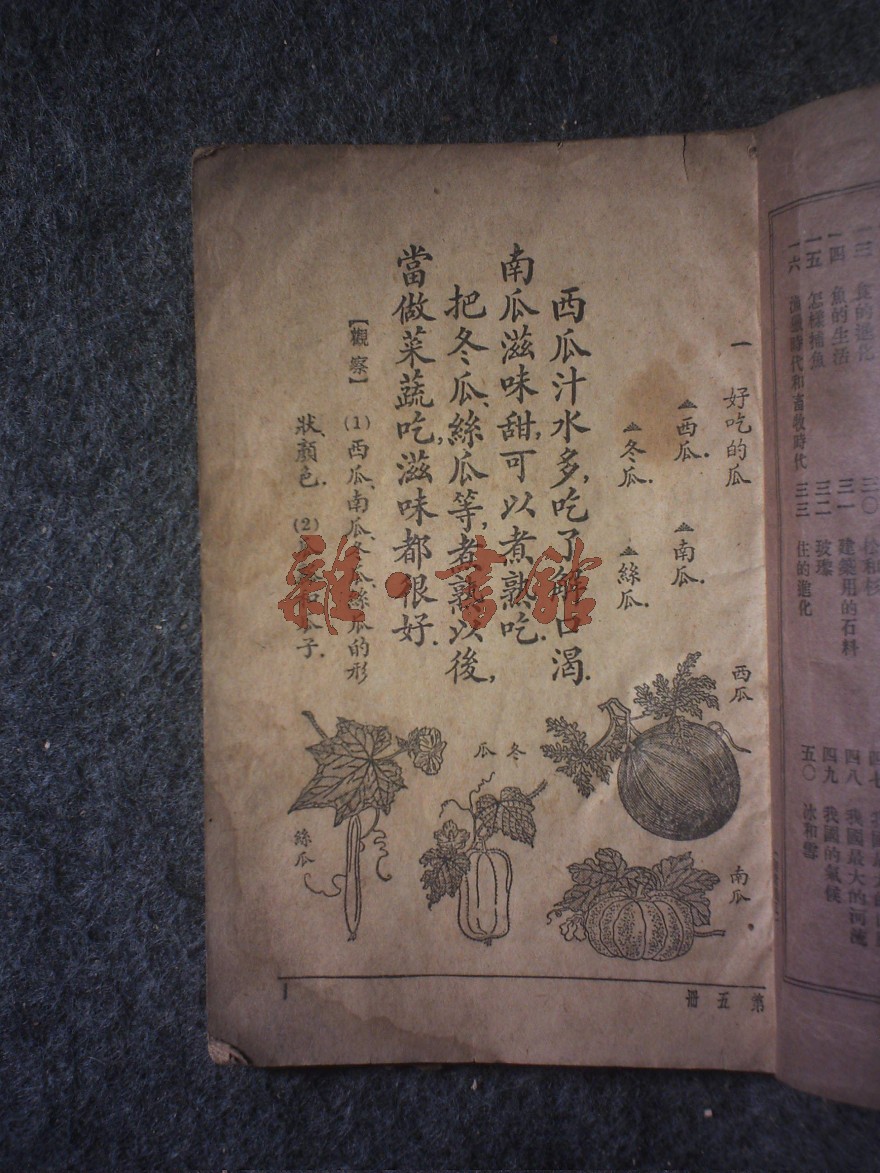 一 好吃的瓜
西瓜. 南瓜.
冬瓜. 絲瓜.
西瓜汁水多,吃了解口渴.
南瓜滋味甜,可以煮熟吃.
把冬瓜、絲瓜等,煮熟以後,
當做菜蔬吃,滋味都很好.
【觀察】 (1)西瓜、南瓜、冬瓜、絲瓜的形
狀、顏色. (2)
子.
西瓜
南瓜
冬瓜
絲瓜
第五冊
1
雜·書館
三〇
一四 魚的生活
三一 建築用的石料
四八 我國最大的河流
一五 怎樣捕魚
三二 玻璨
四九 我國的氣候
一六 漁獵時代和畜牧時代
三三 住的進化
五〇 冰和雪